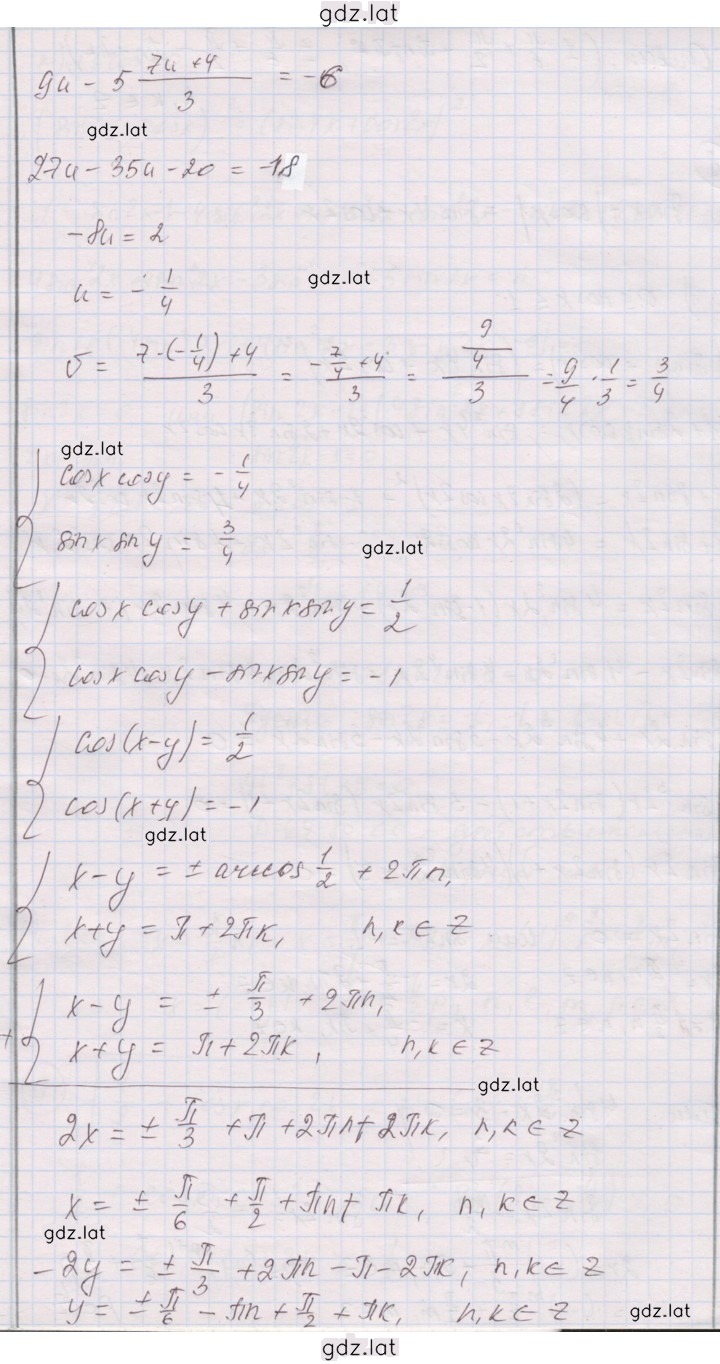 gdz.lat
9u - 5 (7u+4)/3 = -6
gdz.lat
27u - 35u - 20 = -18
-8u = 2
gdz.lat
u = - 1/4
v = (7·(-1/4)+4)/3 = (-7/4+4)/3 = (9/4)/3 = 9/4 · 1/3 = 3/4
gdz.lat
{ cosx cosy = - 1/4
sinx siny = 3/4
gdz.lat
{ cosx cosy + sinx siny = 1/2
cosx cosy - sinx siny = -1
{ cos(x-y) = 1/2
cos(x+y) = -1
gdz.lat
{ x-y = ± arccos 1/2 + 2πn,
x+y = π + 2πk, n,k ∈ Z
+ { x-y = ± π/3 + 2πn,
x+y = π + 2πk, n,k ∈ Z
gdz.lat
2x = ± π/3 + π + 2πn + 2πk, n,k ∈ Z
x = ± π/6 + π/2 + πn + πk, n,k ∈ Z
gdz.lat
-2y = ± π/3 + 2πn - π - 2πk, n,k ∈ Z
y = ± π/6 - πn + π/2 + πk, n,k ∈ Z
gdz.lat
gdz.lat